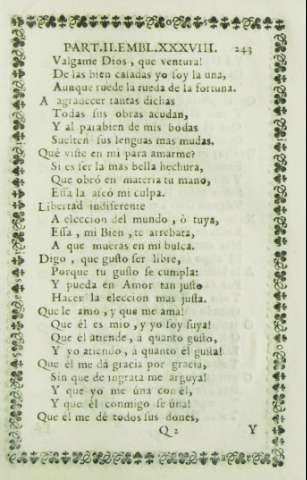 PART.II.EMBL.XXXVIII. 243
Valgame Dios, que ventura!
De las bien casadas yo soy la una,
Aunque ruede la rueda de la fortuna.
A agradecer tantas dichas
Todas sus obras acudan,
Y al parabien de mis bodas
Suelten sus lenguas mas mudas.
Què viste en mi para amarme?
Si es ser la mas bella hechura,
Que obrò en materia tu mano,
Essa la afeò mi culpa.
Libertad indiferente
A eleccion del mundo, ò tuya,
Essa, mi Bien, te arrebata,
A que mueras en mi busca.
Digo, que gusto ser libre,
Porque tu gusto se cumpla:
Y pueda en Amor tan justo
Hacer la eleccion mas justa.
Que le amo, y que me ama!
Que èl es mio, y yo soy suya!
Que èl atiende, à quanto gusto,
Y yo atiendo, à quanto èl gusta!
Que èl me dà gracia por gracia,
Sin que de ingrata me arguya!
Y que yo me una con èl,
Y que èl conmigo se una!
Que èl me dè todos sus dones,
Q 2 Y